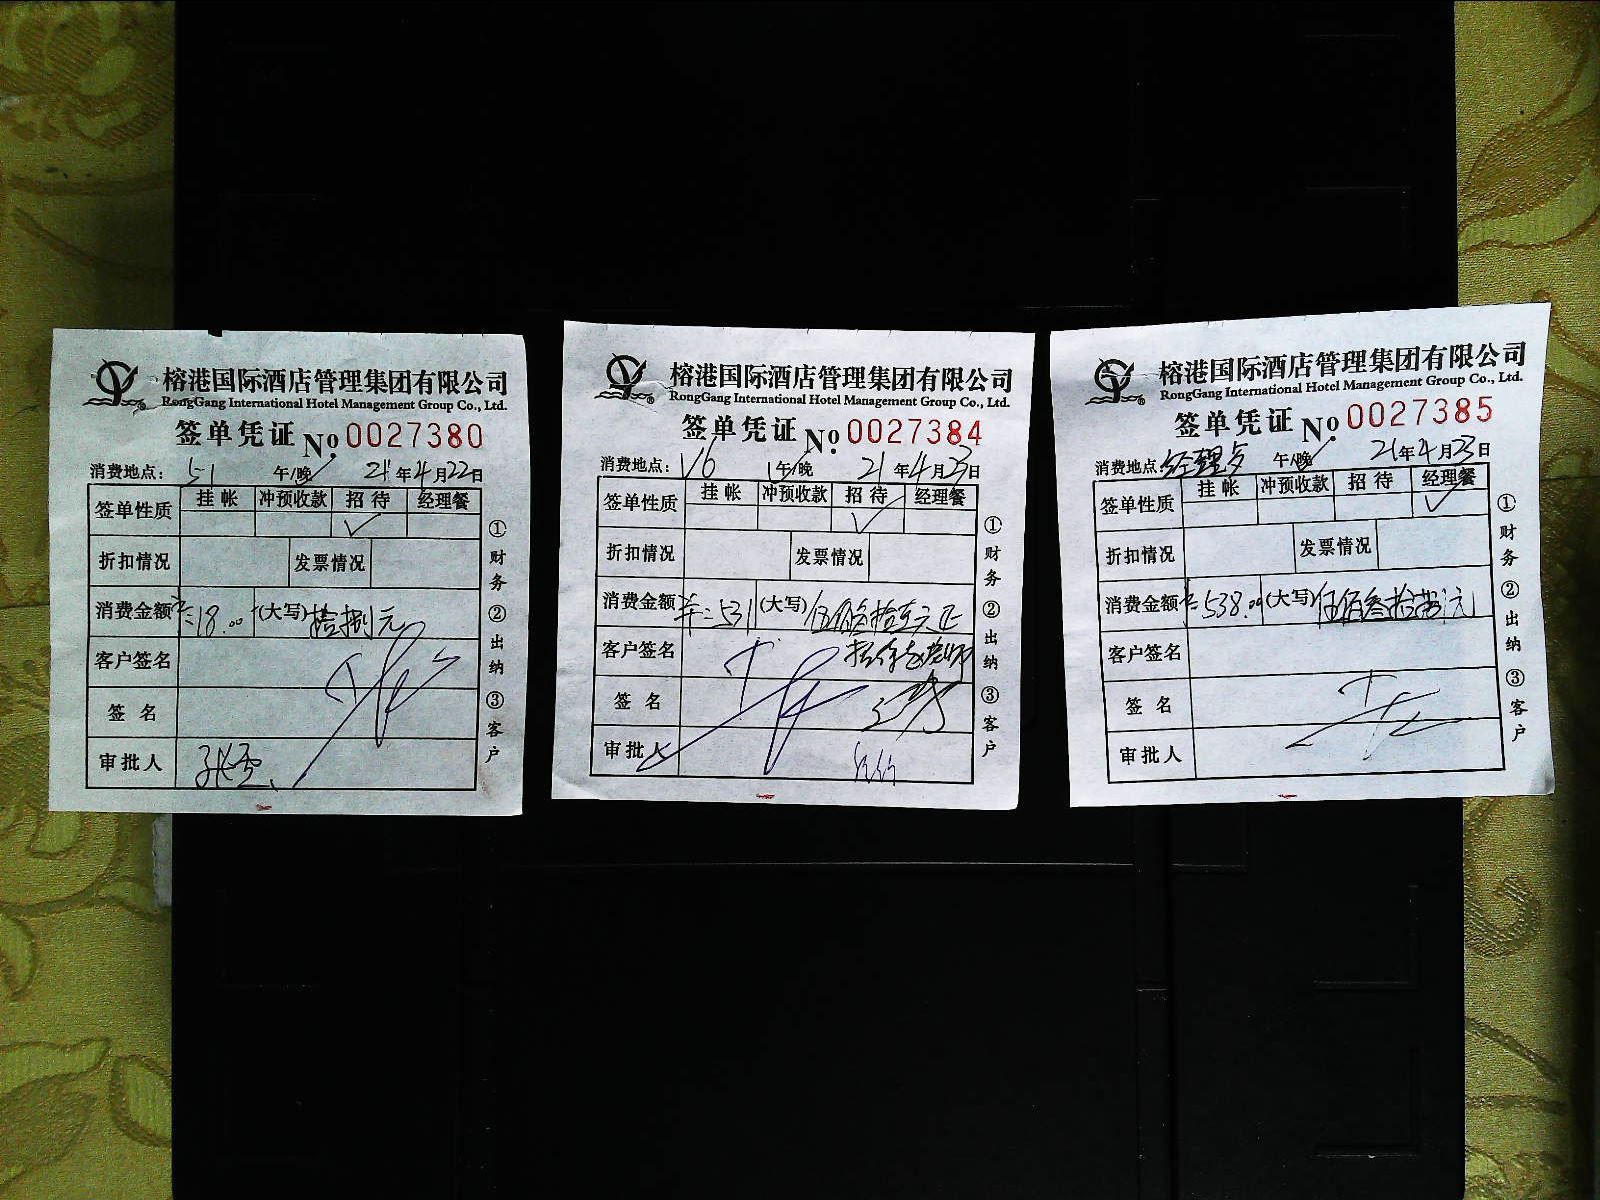 榕港国际酒店管理集团有限公司
RongGang International Hotel Management Group Co., Ltd.
签单凭证 No. 0027380
消费地点: 51 午/晚 21年4月22日
签单性质 挂帐 冲预收款 招待 经理餐
✓
折扣情况 发票情况
消费金额 18.00 (大写) 拾捌元
客户签名
签名
审批人
①财务 ②出纳 ③客户
榕港国际酒店管理集团有限公司
RongGang International Hotel Management Group Co., Ltd.
签单凭证 No. 0027384
消费地点: V6 午/晚 21年4月23日
签单性质 挂帐 冲预收款 招待 经理餐
✓
折扣情况 发票情况
消费金额 531 (大写) 伍佰叁拾壹元正
客户签名
签名
审批人
①财务 ②出纳 ③客户
榕港国际酒店管理集团有限公司
RongGang International Hotel Management Group Co., Ltd.
签单凭证 No. 0027385
消费地点: 经理 午/晚 21年4月23日
签单性质 挂帐 冲预收款 招待 经理餐
✓
折扣情况 发票情况
消费金额 538.00 (大写) 伍佰叁拾捌元
客户签名
签名
审批人
①财务 ②出纳 ③客户